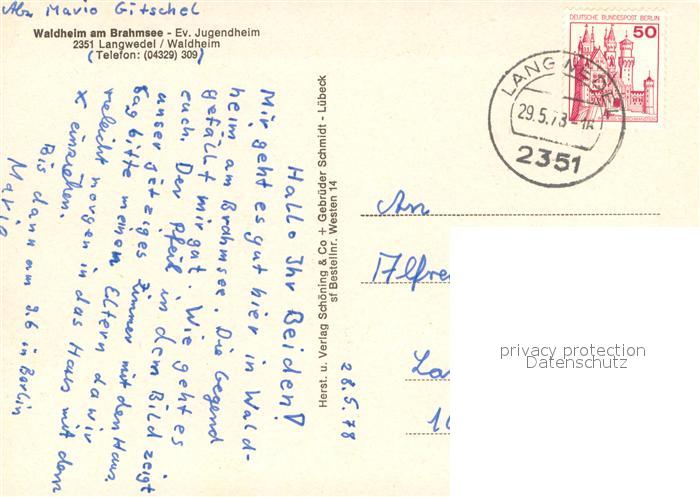 Abs Mario Gitschel
Waldheim am Brahmsee - Ev. Jugendheim
2351 Langwedel / Waldheim
(Telefon: (04329) 309)
Hallo Ihr Beiden!
Mir geht es gut hier in Wald-
heim am Brahmsee. Die Gegend
gefällt mir gut. Wie geht es
euch. Der Pfeil in dem Bild zeigt
unser jetziges Zimmer mit den Haus.
Sag bitte meinen Eltern da wir
vieleicht morgen in das Haus mit dem
x einziehen.
Bis dann am 9.6 in Berlin
Mario
28.5.78
Herst. u. Verlag Schöning & Co + Gebrüder Schmidt - Lübeck
sf Bestellnr. Westen 14
DEUTSCHE BUNDESPOST BERLIN
50
LANGWEDEL
29.5.78-16
2351
An
Alfre
La
10
privacy protection
Datenschutz